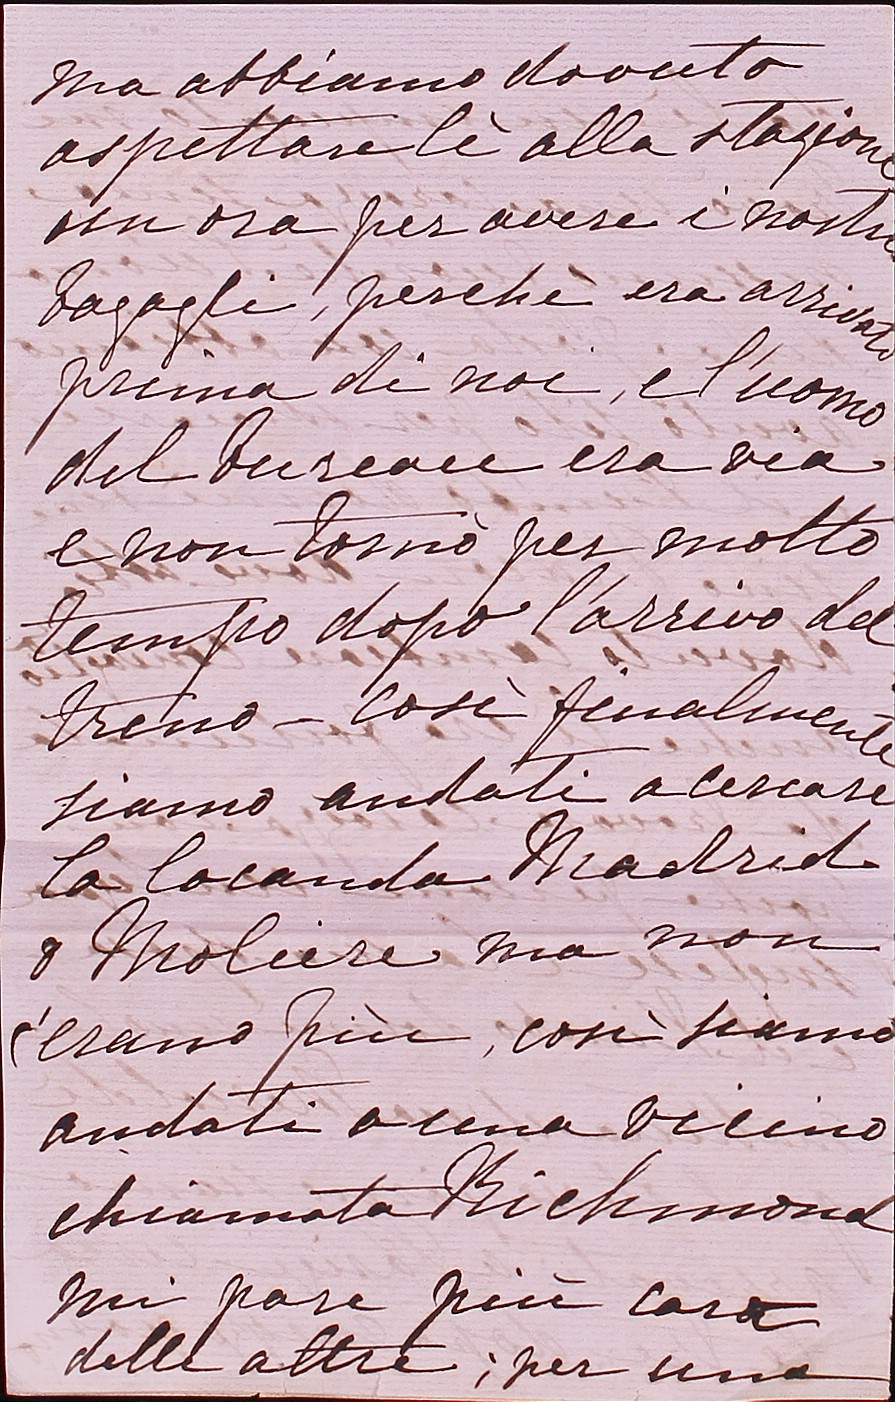 ma abbiamo dovuto
aspettare lì alla stazione
un ora per avere i nostri
bagagli, perchè era arrivato
prima di noi, e l'uomo
del bureau era via
e non tornò per molto
tempo dopo l'arrivo del
treno – così finalmente
siamo andati a cercare
la locanda Madrid
o Moliere ma non
c'erano più, così siamo
andati a una vicino
chiamata Richmond
mi pare più cara
delle altre; per una